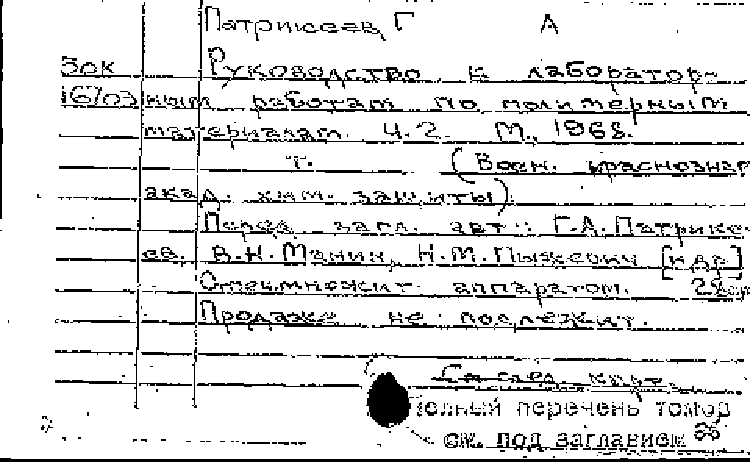 Патрикеев Г А
Зок Руководство к лаборатор-
16/03 ным работам по полимерным
материалам. Ч.2. М., 1968.
т. (Воен. краснознам
акад. хим. защиты).
Перед загл. авт.: Г.А. Патрике-
ев, В.Н. Манин, Н.М. Лыжевич [и др]
Отпеч. множит. аппаратом.
Продаже не подлежит.
См. след. карт.
полный перечень томов
см. под заглавием